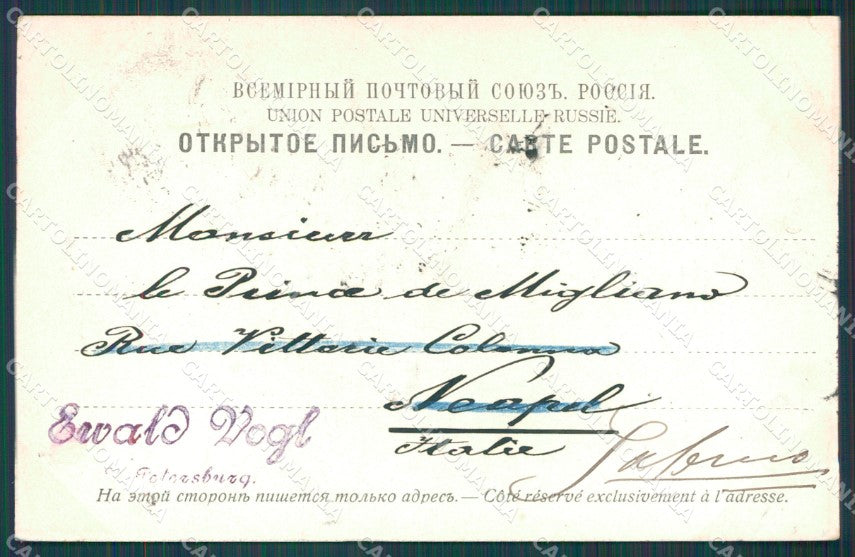 ВСЕМІРНЫЙ ПОЧТОВЫЙ СОЮЗЪ. РОССІЯ.
UNION POSTALE UNIVERSELLE RUSSIE.
ОТКРЫТОЕ ПИСЬМО. — CARTE POSTALE.
Monsieur
le Prince de Migliano
Rue Vittorie Colonna
Neapel
Italie
Ewald Vogl
Petersburg.
На этой сторонѣ пишется только адресъ. — Côté réservé exclusivement à l'adresse.
CARTOLINOMANIA